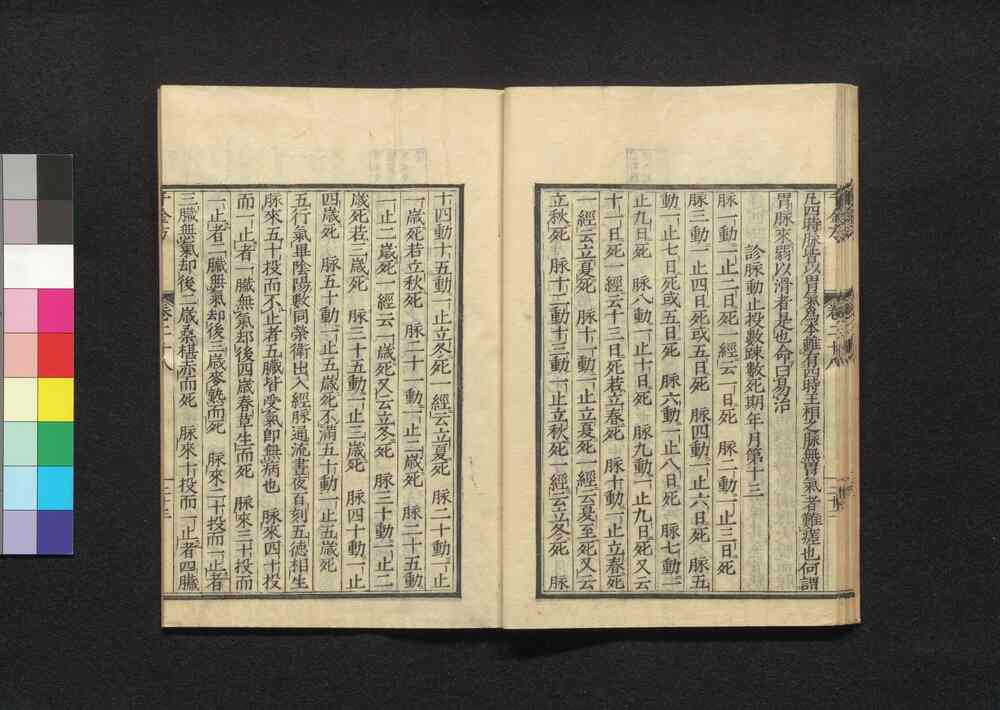 凡四時脉皆以胃氣爲本雖有四時王相之脉無胃氣者難瘥也何謂
胃脉來弱以滑者是也命曰易治
診脉動止投數踈數死期年月第十三
脉一動一止二日死一經云一日死 脉二動一止三日死
脉三動一止四日死或五日死 脉四動一止六日死 脉五
動一止七日死或五日死 脉六動一止八日死 脉七動一
止九日死 脉八動一止十日死 脉九動一止九日死又云
十一日死一經云十三日死若立春死 脉十動一止立春死
一經云立夏死 脉十一動一止立夏死一經云夏至死又云
立秋死 脉十二動十三動一止立秋死一經云立冬死 脉
十四動十五動一止立冬死一經云立夏死 脉二十動一止
一歲死若立秋死 脉二十一動一止二歲死 脉二十五動
一止二歲死一經云一歲死又云立冬死 脉三十動一止二
歲死若三歲死 脉三十五動一止三歲死 脉四十動一止
四歲死 脉五十動一止五歲死不滿五十動一止五歲死
五行氣畢陰陽數同榮衛出入經脉通流晝夜百刻五德相生
脉來五十投而不止者五臟皆受氣卽無病也 脉來四十投
而一止者一臟無氣却後四歲春草生而死 脉來三十投而
一止者二臟無氣却後三歲麥熟而死 脉來二十投而一止者
三臟無氣却後二歲桑椹赤而死 脉來十投而一止者四臟
千金方
卷二十八
二十三